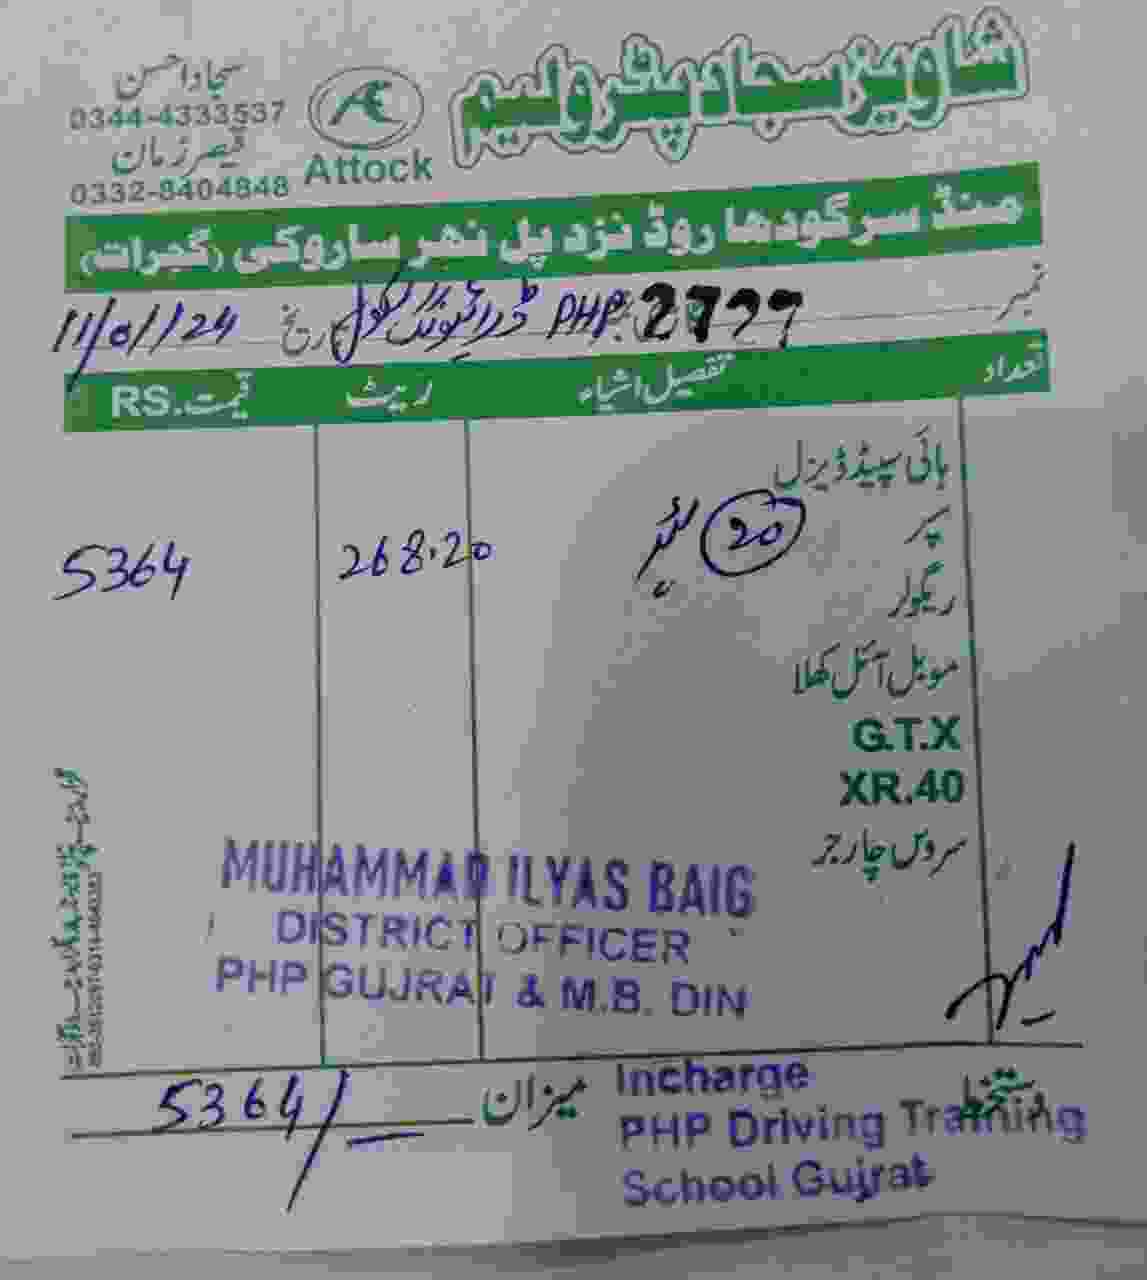 شاویز سجاد پٹرولیم
Attock
سجاد احسن
0344-4333537
قیصر زمان
0332-8404848
منڈ سرگودھا روڈ نزد پل نهر ساروکی (گجرات)
نمبر PHP. 2777 ڈرائیونگ سکول تاریخ 11/01/24
تعداد تفصیل اشیاء ریٹ قیمت RS.
ہائی سپیڈ ڈیزل
سپر 20 لیٹر 268.20 5364
ریگولر
موبل آئل کھلا
G.T.X
XR.40
سروس چارجز
MUHAMMAD ILYAS BAIG
DISTRICT OFFICER
PHP GUJRAT & M.B. DIN
دستخط
میزان 5364/
Incharge
PHP Driving Training
School Gujrat